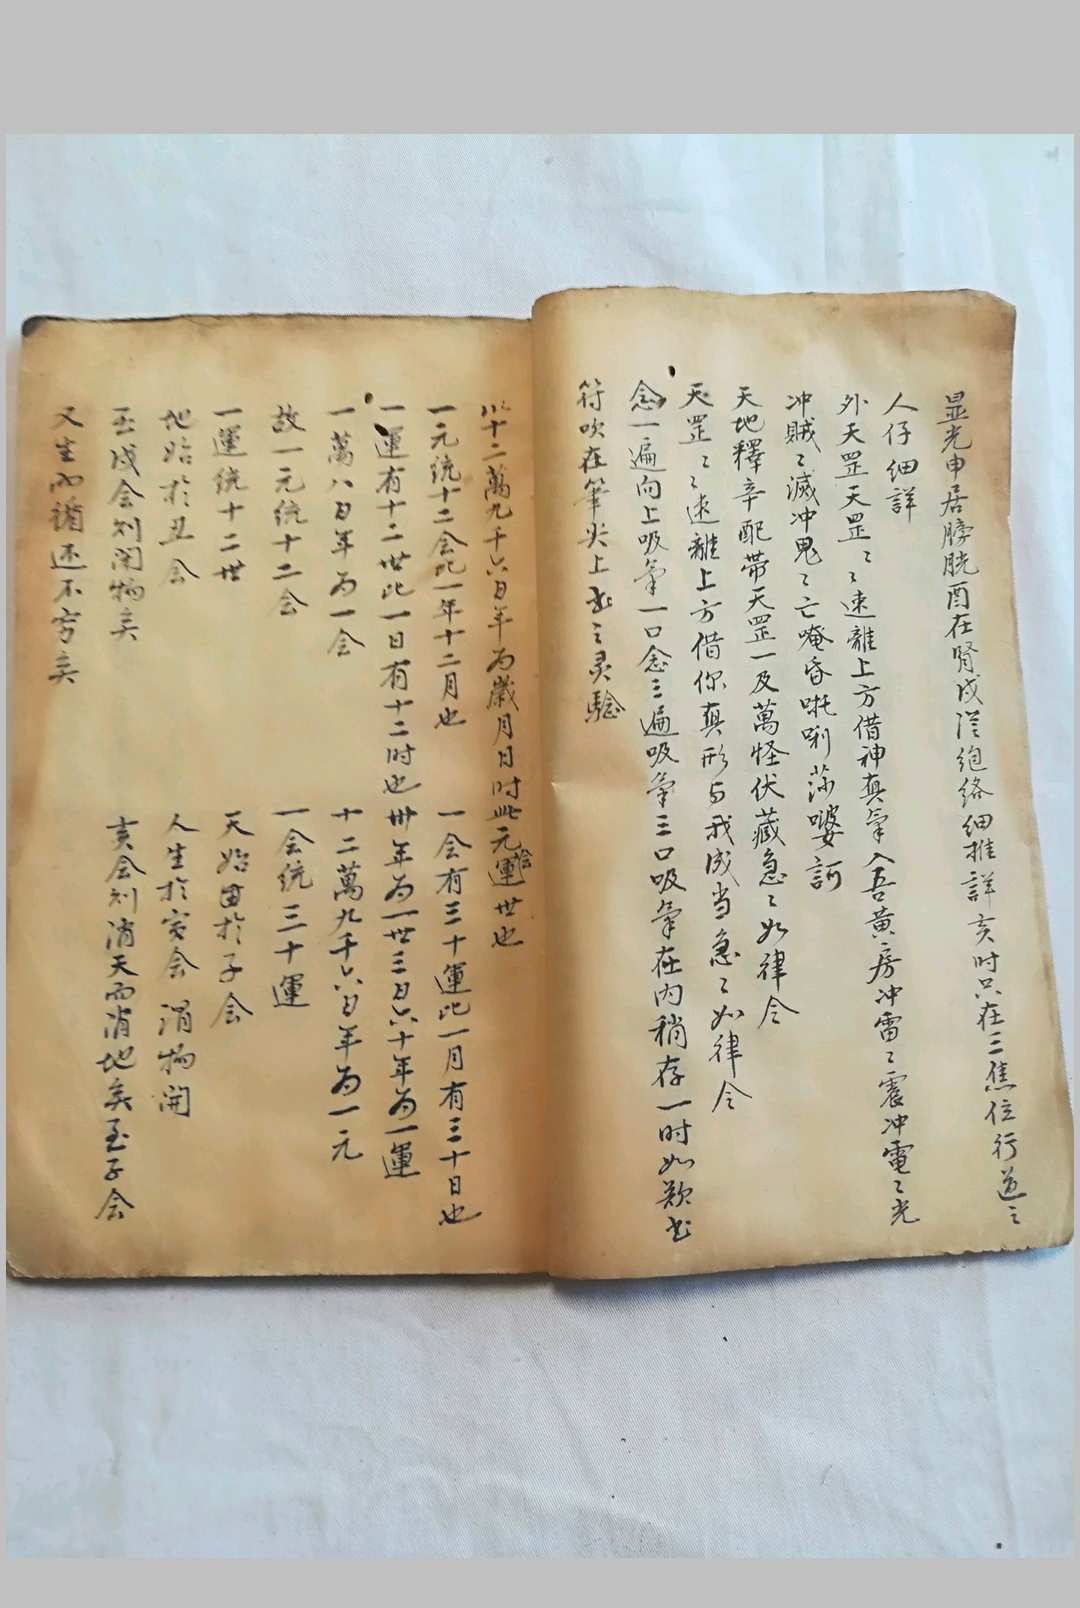 显光申居膀胱酉在腎戌從絶络细推詳亥时只在三焦位行道之
人仔细詳
外天罡天罡〻〻速離上方借神真氣入吾黄房冲雷〻震冲電〻光
冲賊〻滅冲鬼〻亡唵昏吒唎莎婆訶
天地釋辛配带天罡一及萬怪伏藏急〻如律令
天罡〻〻速離上方借你真形与我成当急〻如律令
念一遍向上吸氣一口念三遍吸氣三口吸氣在内稍存一时如欺书
符吹在筆尖上书之灵騐
以十二萬九千六百年为歲月日时此元會運世也
一元統十二会比一年十二月也 一会有三十運比一月有三十日也
一運有十二世比一日有十二时也 卅年为一世三百六十年为一運
一萬八百年为一会 十二萬九千六百年为一元
故一元統十二会 一会統三十運
一運統十二世 天始於子会
地始於丑会 人生於寅会 渭物開
至戌会刘閉物矣 亥会刘消天而消地矣至子会
又生而循还不穷矣